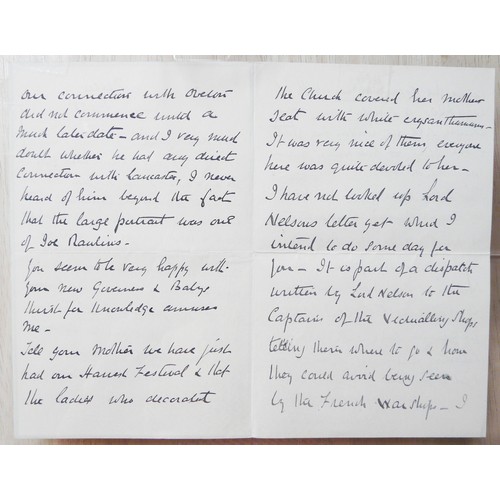 Our connection with Overton
did not commence until a
much later date - and I very much
doubt whether he had any direct
connection with Lancaster, I never
heard of him beyond the fact
that the large portrait was one
of Joe Rawlins -
You seem to be very happy with
your new Governess & Babys
thirst for knowledge amuses
me -
Tell your mother we have just
had our Harvest Festival & that
the ladies who decorated
the Church covered her mothers
seat with white crysanthamums -
It was very nice of them, everyone
here was quite devoted to her -
I have not looked up Lord
Nelsons letter yet which I
intend to do some day for
you - It is part of a dispatch
written by Lord Nelson to the
Captains of the Victualling Ships
telling them where to go & how
they could avoid being seen
by the French warships - I